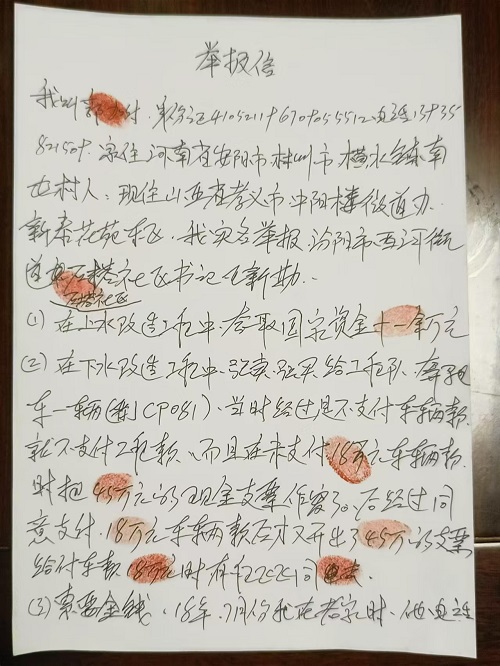 举报信
我叫郭付，身份证410521196709055512电话139358
82150，家住河南省安阳市林州市横水镇南
屯村人：现住山西省孝义市中阳楼街道办
新春花苑小区，我实名举报汾阳市西河街
道办石塔社区书记王新勤、
石塔社区
（1）在上水改造工程中，套取国家资金十一拿万元
（2）在下水改造工程中，强卖强买给工程队、
车一辆（CP081）、当时经过是不支付车辆款，
就不支付工程款，而且在未支付18万元车辆款
时把45万元的现金支票作废了。后经过同
意支付18万元车辆款后才又开出了45万的支票
给付车款18万元时有合同
（3）索要金钱、18年7月份我在老家时、他电话